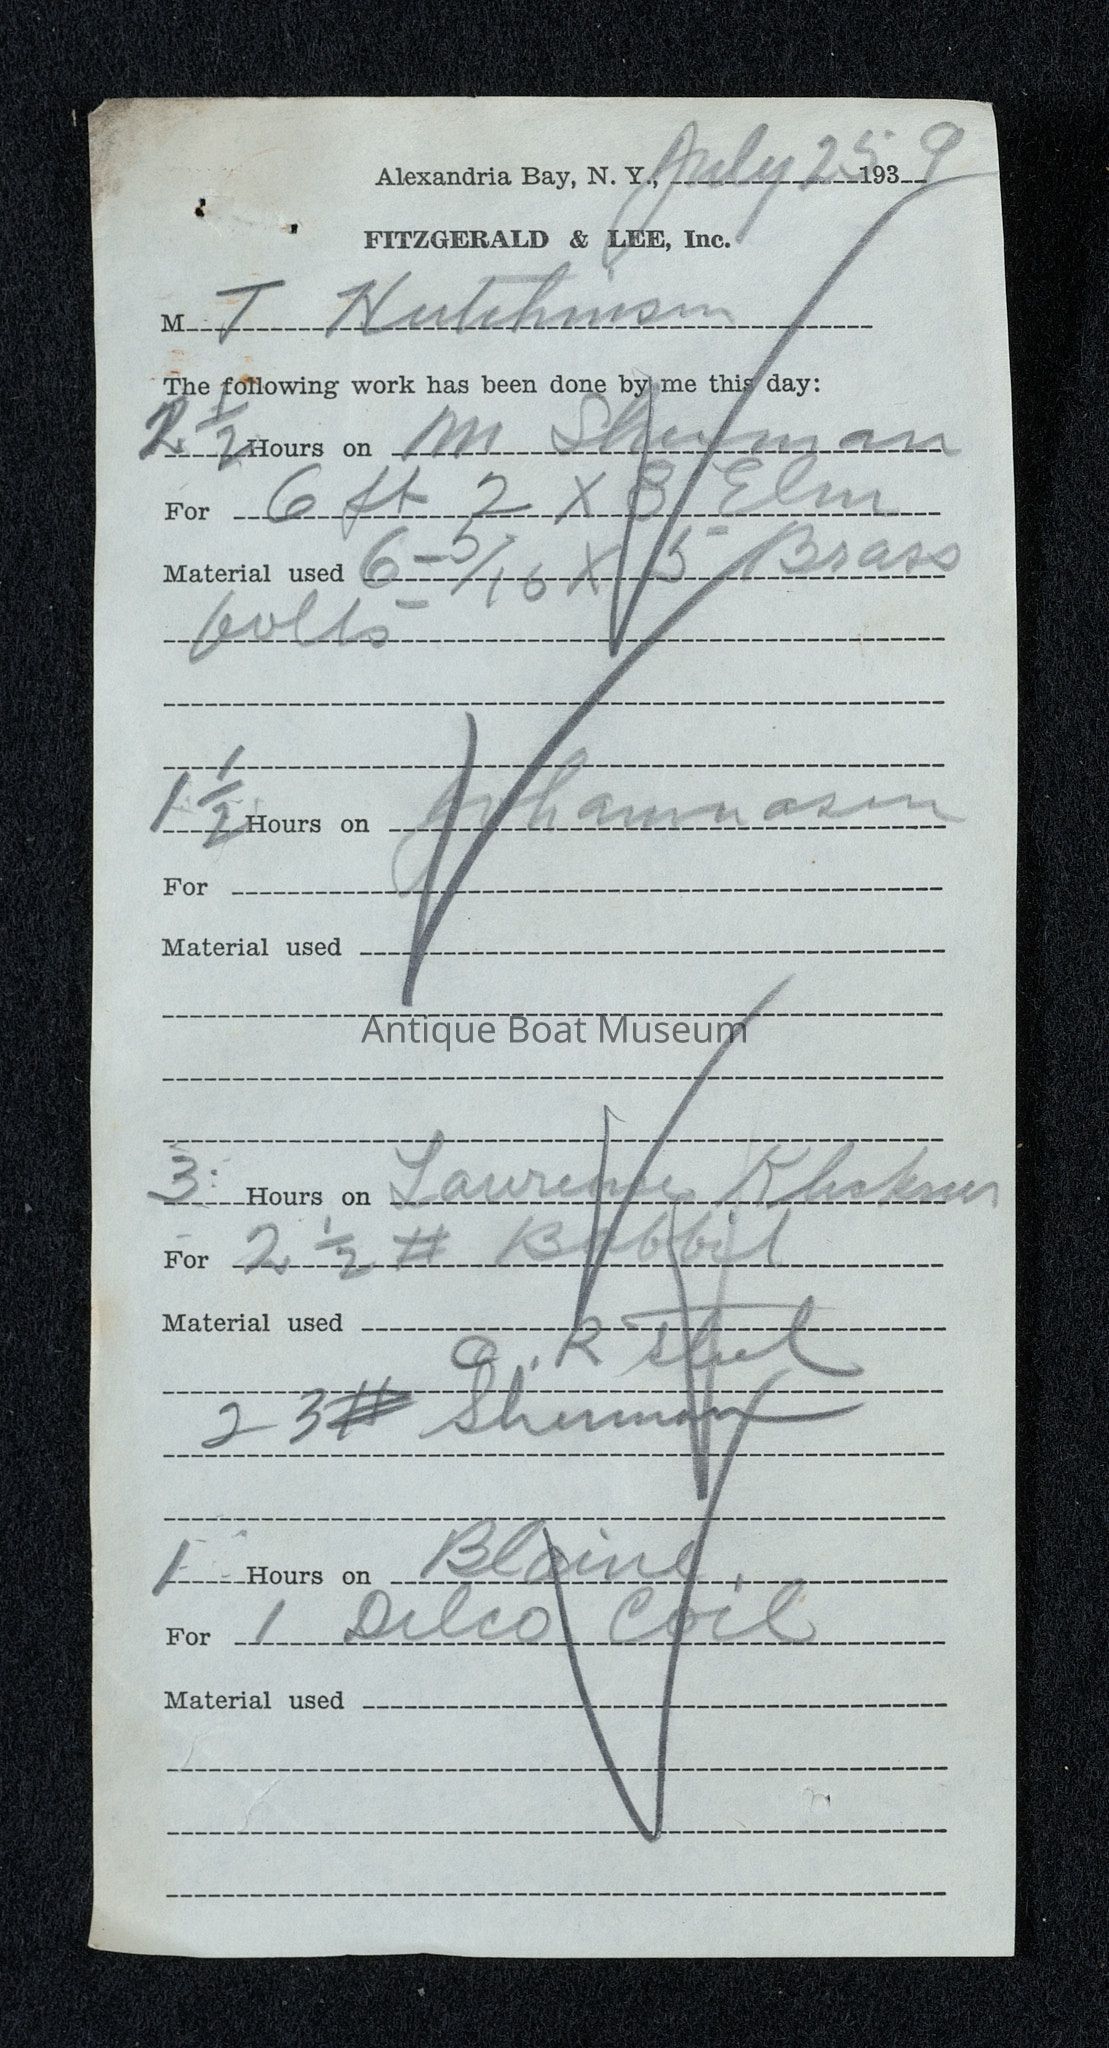 Alexandria Bay, N. Y., July 25 1939
FITZGERALD & LEE, Inc.
M T Hutchinson
The following work has been done by me this day:
2 1/2 Hours on M Sherman
For 6 ft 2 x 8 Elm
Material used 6 - 5/16 x 5" Brass
bolts
1 1/2 Hours on
For
Material used
Antique Boat Museum
3 Hours on Lawrence
For 2 1/2 # Babbit
Material used
C.R Steel
23# Sherman
1 Hours on Blaine
For 1 Delco Coil
Material used